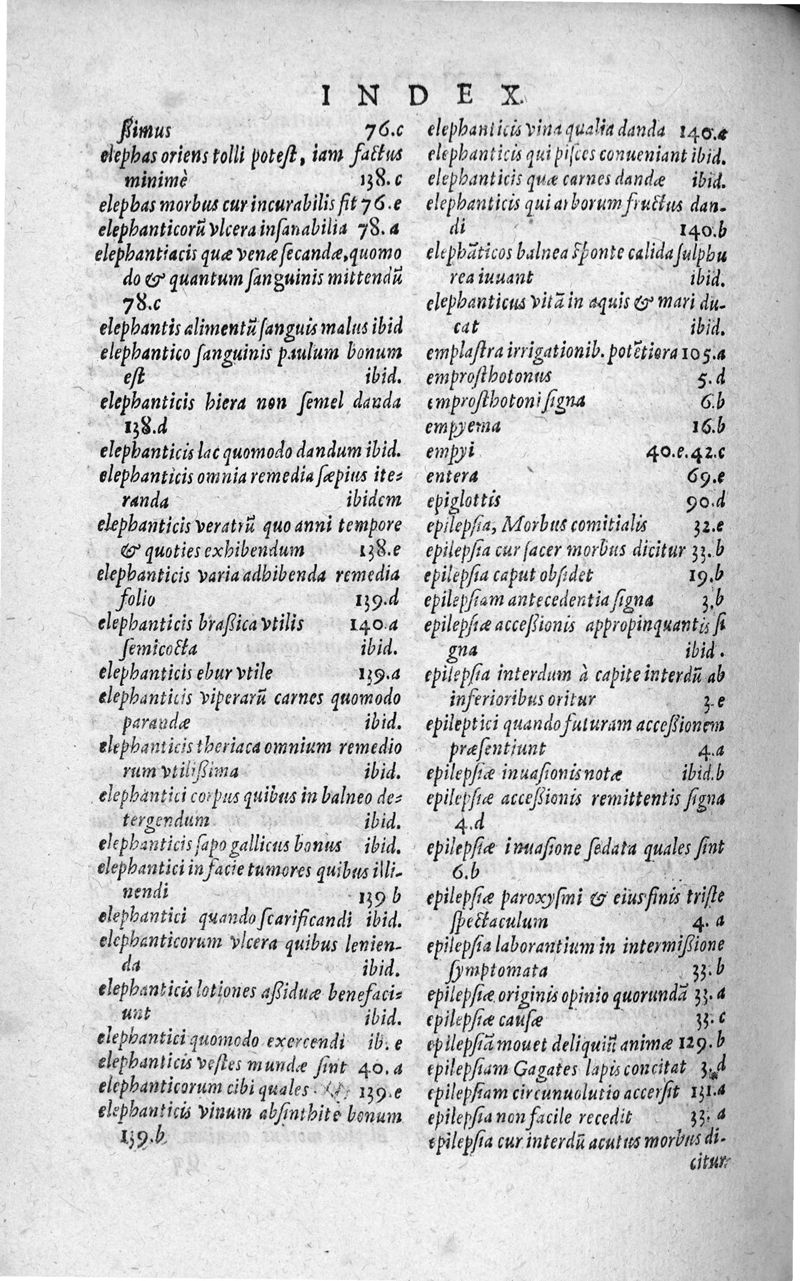 INDEX
ßimus 76.c
elephas oriens tolli potest, iam factus
minimè 138.c
elephas morbus cur incurabilis sit 76.e
elephanticorũ vlcera insanabilia 78.a
elephantiacis quæ venæ secandæ, quomo
do & quantum sanguinis mittendũ
78.c
elephantis alimentũ sanguis malus ibid
elephantico sanguinis paulum bonum
est ibid.
elephanticis hiera non semel danda
138.d
elephanticis lac quomodo dandum ibid.
elephanticis omnia remedia sæpius ite=
randa ibidem
elephanticis veratrũ quo anni tempore
& quoties exhibendum 138.e
elephanticis varia adhibenda remedia
folio 139.d
elephanticis braßica vtilis 140.a
semicocta ibid.
elephanticis ebur vtile 139.a
elephanticis viperarũ carnes quomodo
parandæ ibid.
elephanticis theriaca omnium remedio
rum vtilißima ibid.
elephantici corpus quibus in balneo de=
tergendum ibid.
elephanticis sapo gallicus bonus ibid.
elephantici in facie tumores quibus illi-
nendi 139 b
elephantici quando scarificandi ibid.
elephanticorum vlcera quibus lenien-
da ibid.
elephanticis lotiones aßiduæ benefaci=
unt ibid.
elephantici quomodo exercendi ib. e
elephanticis vestes mundæ sint 40.a
elephanticorum cibi quales 139.e
elephanticis vinum absinthitē bonum
139.b
elephanticis vina qualia danda 140.a
elephanticis qui pisces conueniant ibid.
elephanticis quæ carnes dandæ ibid.
elephanticis qui arborum fructus dan-
di 140.b
elephāticos balnea sponte calida sulphu
rea iuuant ibid.
elephanticus vitā in aquis & mari du-
cat ibid.
emplastra irrigationib. potētiora 105.a
emprosthotonus 5.d
emprosthotoni signa 6.b
empyema 16.b
empyi 40.e.42.c
entera 69.e
epiglottis 90.d
epilepsia, Morbus comitialis 32.e
epilepsia cur sacer morbus dicitur 33.b
epilepsia caput obsidet 19.b
epilepsiam antecedentia signa 3.b
epilepsiæ acceßionis appropinquantis si
gna ibid.
epilepsia interdum à capite interdũ ab
inferioribus oritur 3.e
epileptici quando futuram acceßionem
præsentiunt 4.a
epilepsiæ inuasionis notæ ibid.b
epilepsiæ acceßionis remittentis signa
4.d
epilepsiæ inuasione sedata quales sint
6.b
epilepsiæ paroxysmi & eius finis triste
spectaculum 4.a
epilepsia laborantium in intermißione
symptomata 33.b
epilepsiæ originis opinio quorundā 33.a
epilepsiæ causæ 33.c
epilepsiā mouet deliquiũ animæ 129.b
epilepsiam Gagates lapis concitat 3.d
epilepsiam circunuolutio accersit 131.a
epilepsia non facile recedit 33.a
epilepsia cur interdũ acutus morbus di-
citur